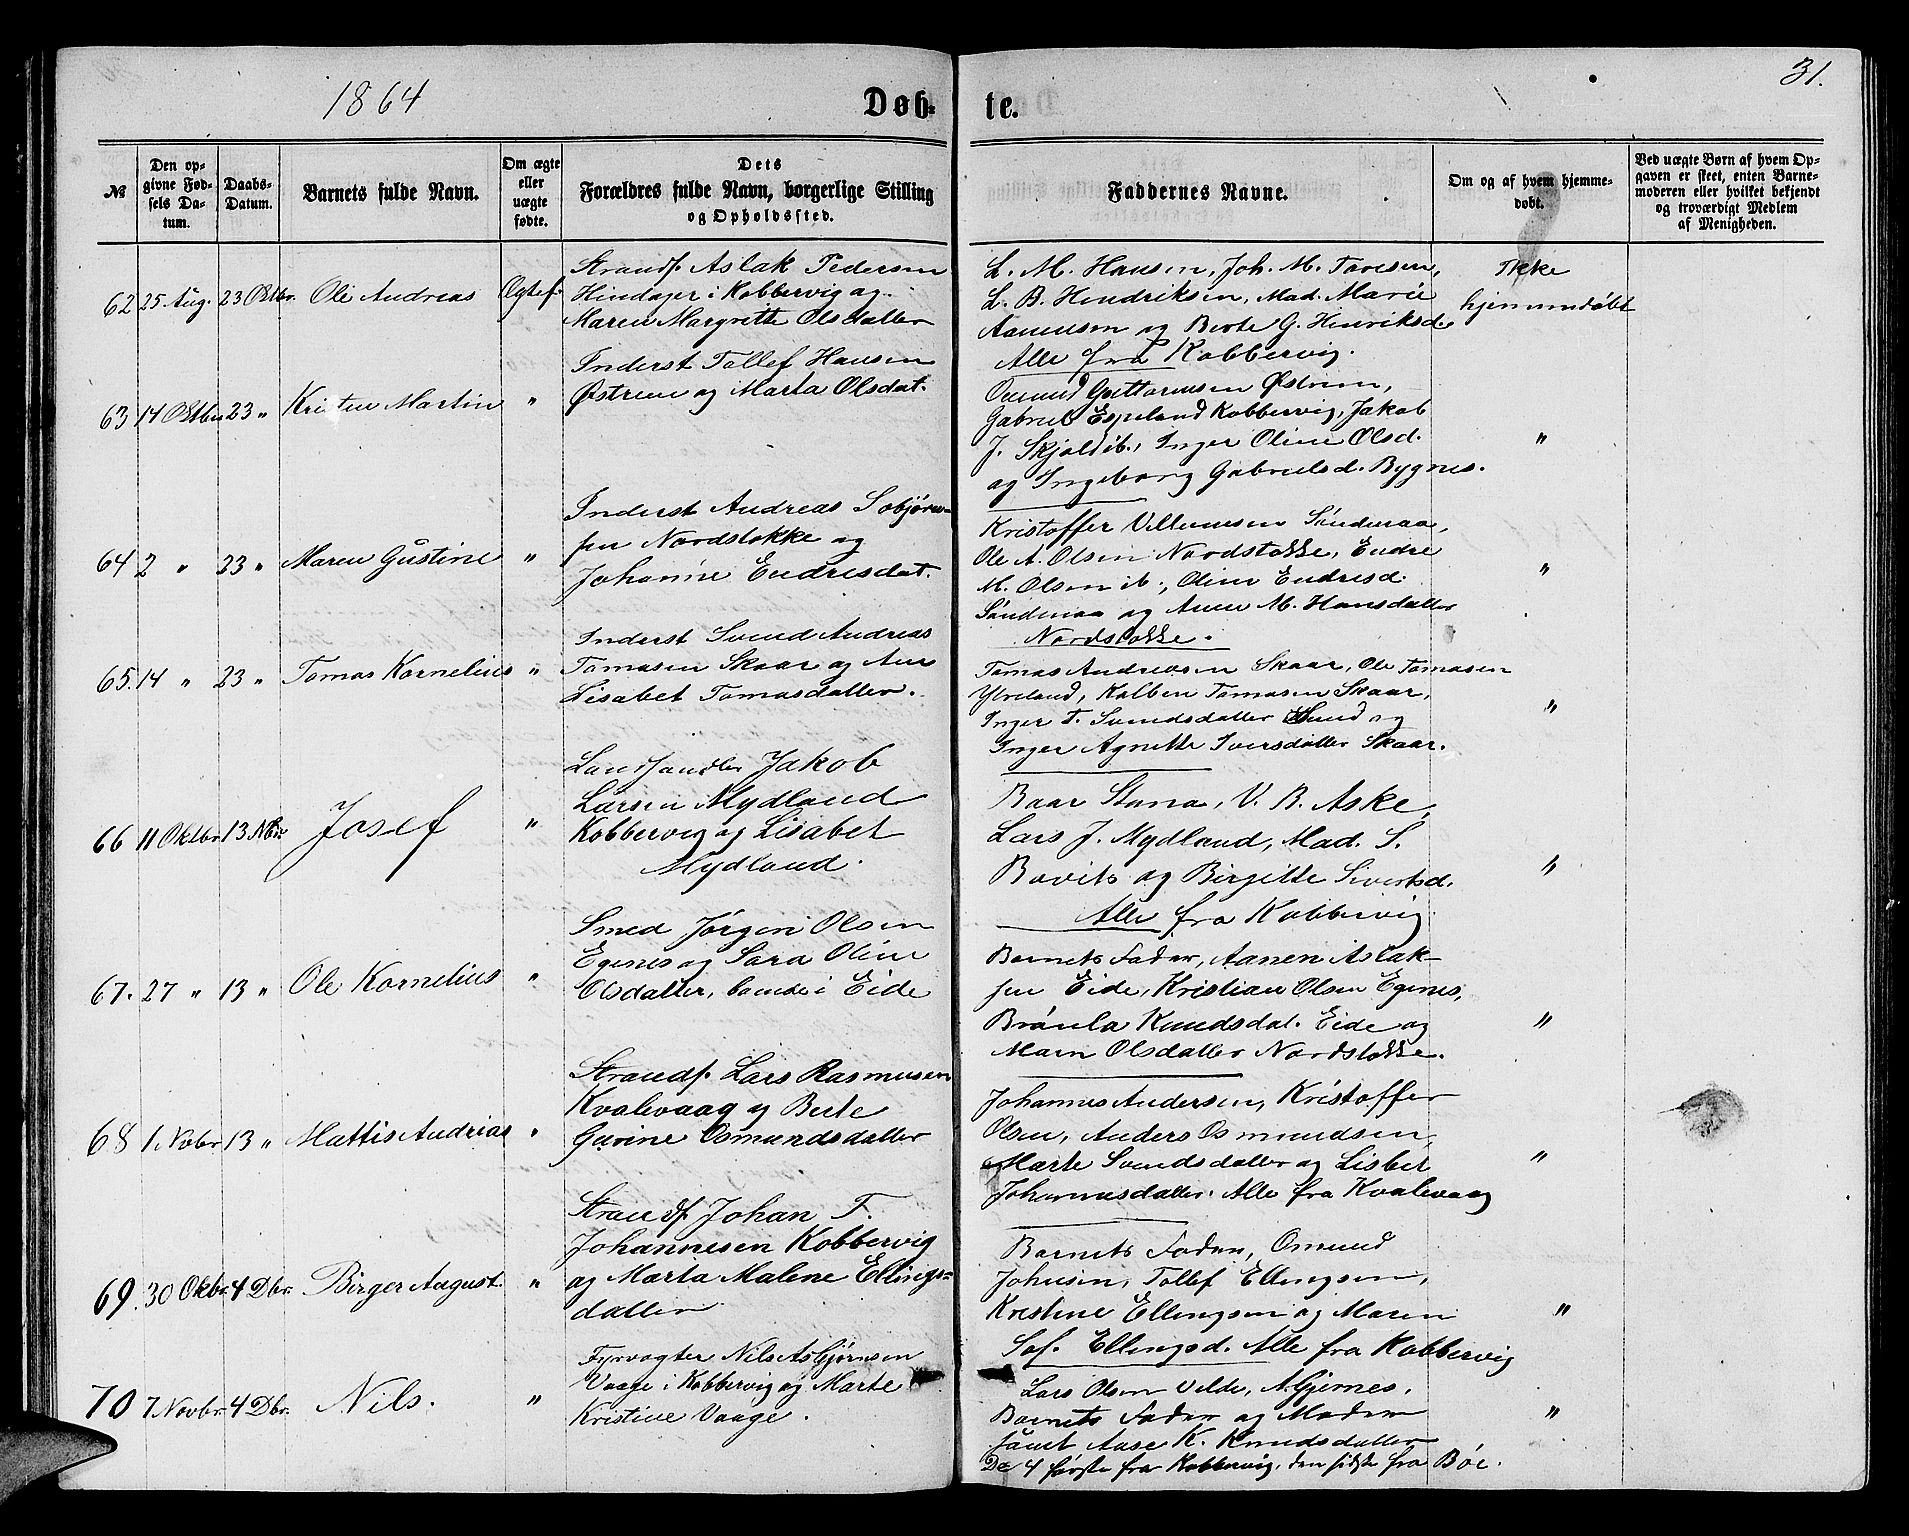 1864
Døb-
te.
31.
№
Den op-
givne Fød-
sels Da-
tum.
Daabs-
Datum.
Barnets fulde Navn.
Om ægte
eller
uægte
fødte.
Dets
Forældres fulde Navn, borgerlige Stilling
og Opholdssted.
Faddernes Navne.
Om og af hvem hjemme-
døbt.
Ved uægte Børn af hvem Op-
gaven er skeet, enten Barne-
moderen eller hvilket bekjendt
og troværdigt Medlem
af Menigheden.
62 25 Aug. 23 Oktbr. Ole Andreas Ægtef.
Strandf. Aslak Pedersen
Hindager i Kobbervig og
Maren Margrethe Olsdatter
L. M. Hansen, Joh. M. Toresen,
L. B. Hendriksen, Mad. Marie
Aanensen og Berte G. Henriksd.
Alle fra Kobbervig.
Ikke
hjemmedøbt
63 14 Oktbr 23 " Kristen Martin "
Inderst Tollef Hansen
Østrem og Marta Olsdat.
Osmund Guttormsen Østrem,
Gabriel Espeland Kobbervig, Jakob
J. Skjold ib., Inger Oline Olsd.
og Ingeborg Gabrielsd. Bygnes.
"
64 2 " 23 " Maren Gustine "
Inderst Andreas Sobjørn-
sen Nordstokke og
Johanne Endresdat.
Kristoffer Villumsen Söndenaa,
Ole A. Olsen Nordstokke, Endre
M. Olsen ib., Oline Endresd.
Söndenaa og Anne M. Hansdatter
Nordstokke.
"
65. 14 " 23 " Tomas Kornelius "
Inderst Svend Andreas
Tomasen Skaar og Ane
Lisabet Tomasdatter.
Tomas Andreasen Skaar, Ole Tomasen
Ytreland, Kolben Tomasen Skaar,
Inger T. Svendsdatter Sund og
Inger Agnethe Iversdatter Skaar.
"
66 11 Oktbr 13 Nbr Josef "
Landhandler Jakob
Larsen Mydland
Kobbervig og Lisabet
Mydland.
Baar Stana, V. B. Aske,
Lars J. Mydland, Mad. S.
Bovits og Birgitte Sivertsd.
Alle fra Kobbervig
"
67. 27 " 13 " Ole Kornelius "
Smed Jörgen Olsen
Egenes og Sara Oline
Olsdatter, boende i Eide
Barnets Fader, Aanen Aslak-
sen Eide, Kristian Olsen Egenes,
Brönla Knudsdat. Eide og
Maren Olsdatter Nordstokke.
"
68 1 Nobr 13 " Mattis Andreas "
Strandf. Lars Rasmusen
Kvalevaag og Berte
Gurine Osmundsdatter
Johannes Andersen, Kristoffer
Olsen, Anders Osmundsen,
Marte Svendsdatter og Lisbet
Johannesdatter. Alle fra Kvalevaag
"
69. 30 Oktbr. 4 Dbr. Birger August. "
Strandf. Johan T.
Johannesen Kobbervig
og Marta Malene Ellings-
datter
Barnets Fader, Osmund
Johnsen, Tollef Ellingsen,
Kristine Ellingsen og Maren
Sof. Ellingsd. Alle fra Kobbervig
"
70 7 Novbr. 4 Dbr. Nils. "
Fyrvogter Nils Asbjørnsen
Vaage i Kobbervig og Marte
Kristine Vaage.
Lars Olsen Velde, A. Gjernes,
Barnets Fader og Moder
samt Aase K. Knudsdatter
De 4 første fra Kobbervig, den sidste fra Böe.
"